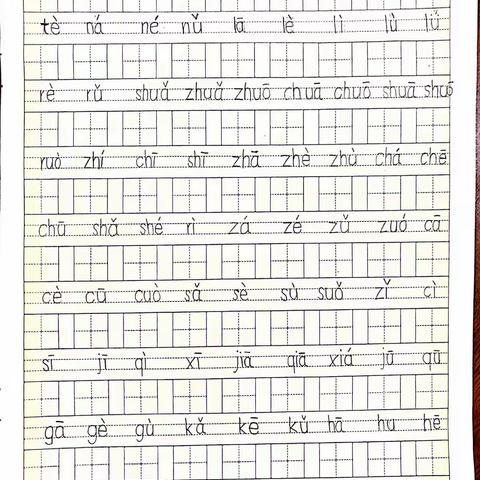 tè ná né nǚ lā lè lì lù lǚ
rè rǔ shuǎ zhuǎ zhuō chuā chuō shuā shuō
ruò zhí chī shī zhā zhè zhù chá chē
chū shǎ shé rì zá zé zǔ zuó cā
cè cū cuò sǎ sè sù suǒ zǐ cì
sī jī qì xī jiā qiā xiá jū qū
gā gè gù kǎ kē kǔ hā hu hē